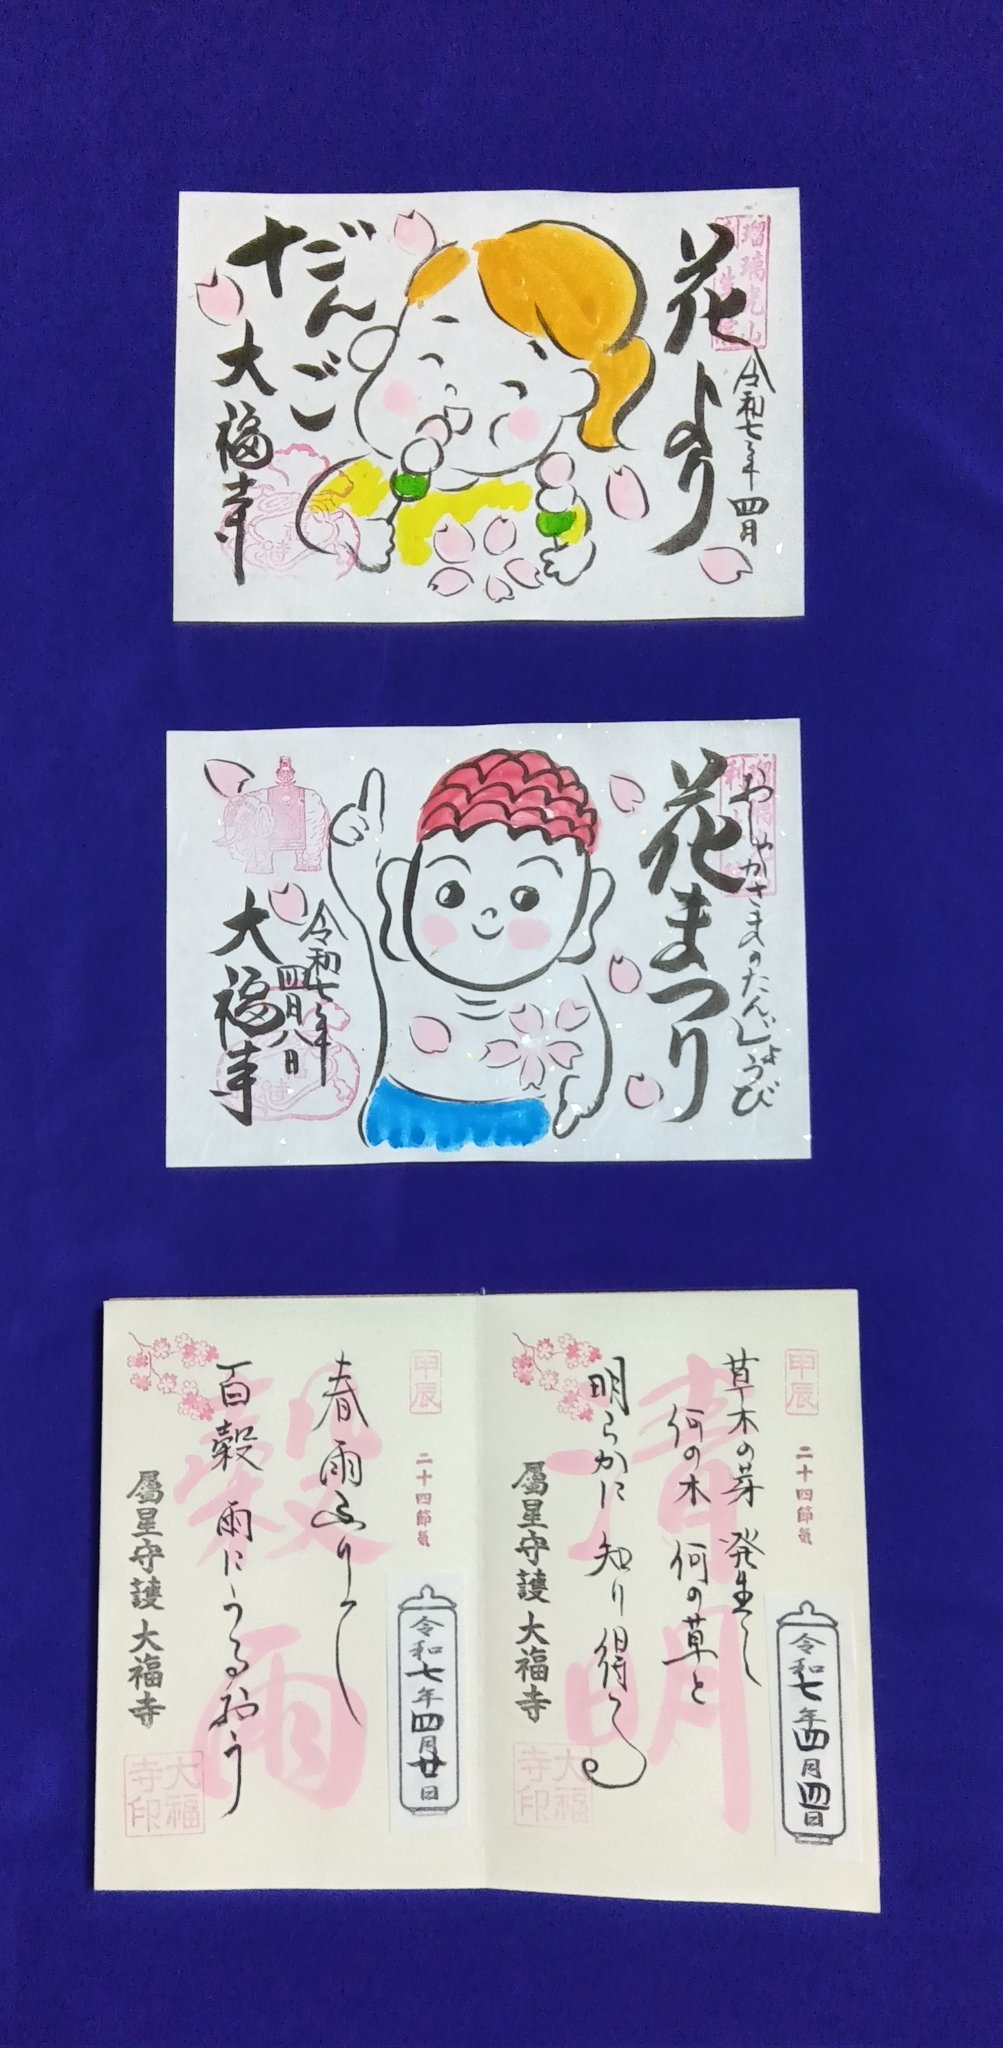 令和七年四月
花より
だんご
大福寺
おしゃかさまのたんじょうび
花まつり
令和七年
四月八日
大福寺
甲辰
二十四節気
令和七年四月四日
清明
草木の芽 発生し
何の木 何の草と
明らかに 知り得る
属星守護 大福寺
大福
寺印
甲辰
二十四節気
令和七年四月廿日
穀雨
春雨ふりて
百穀 雨にうるおう
属星守護 大福寺
大福
寺印